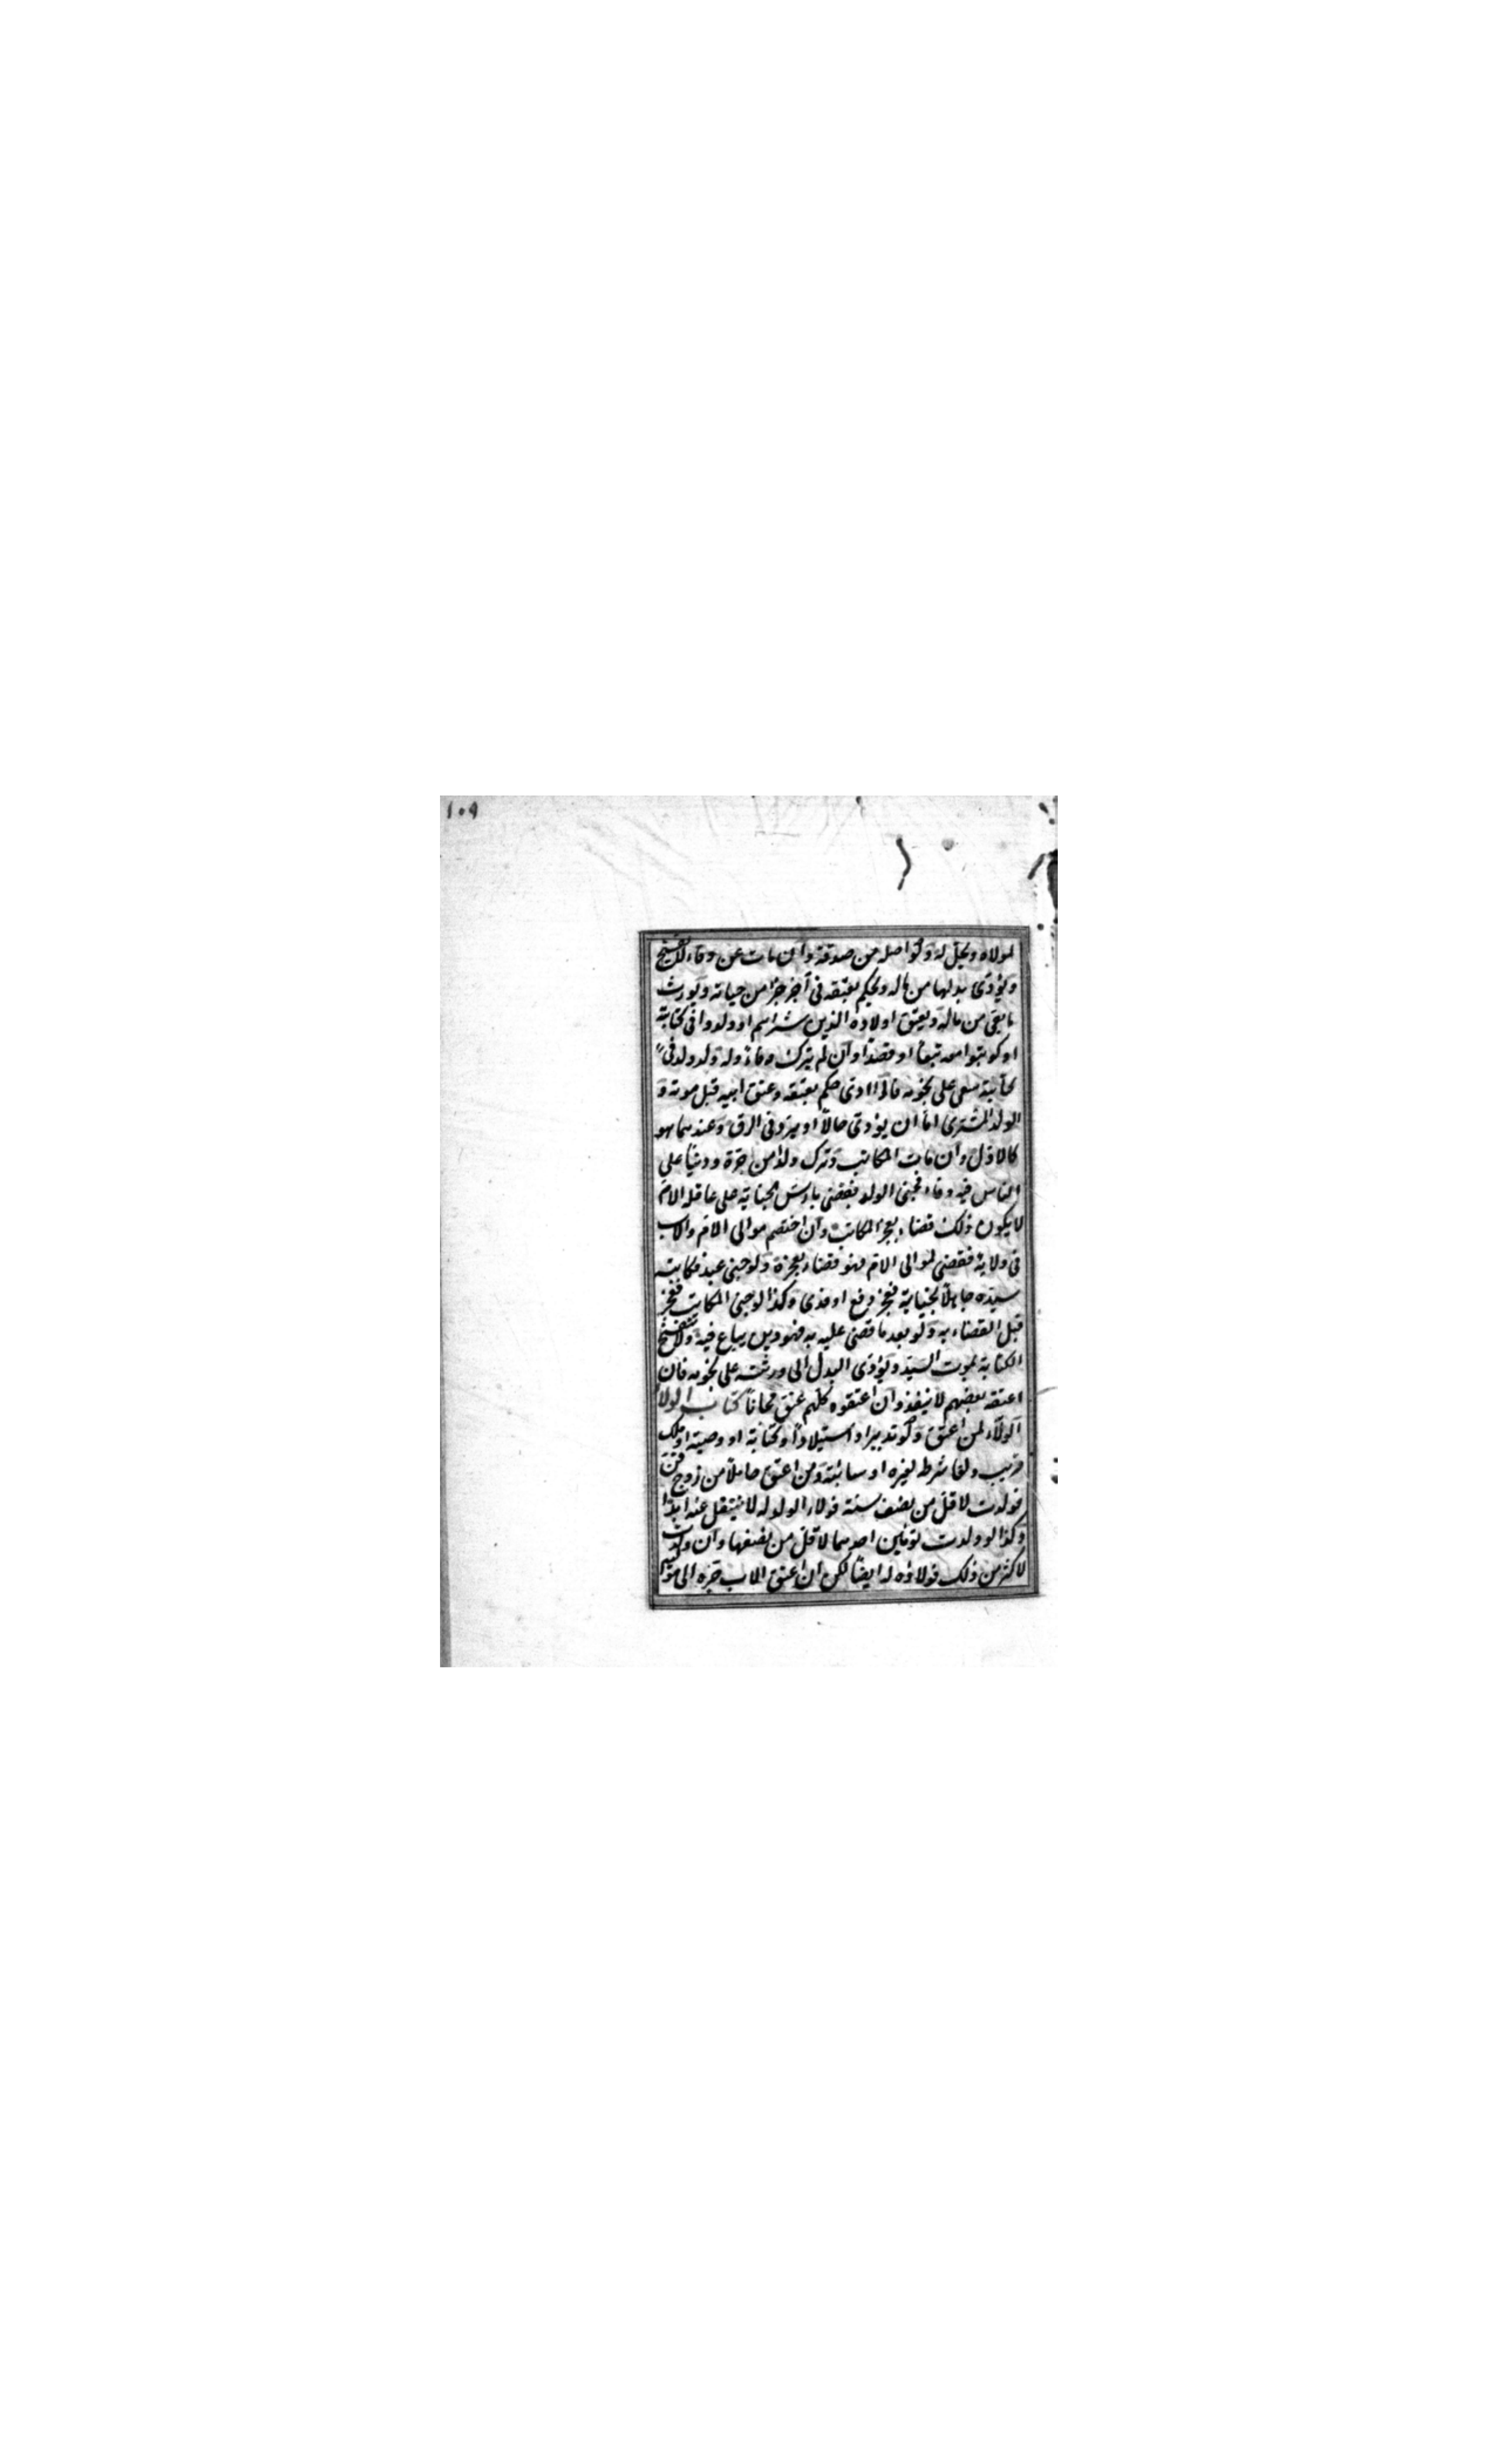 ١٠٩
لمولاه ويحل له ولو اصله من صدقة وان مات عن وفاء لا تنفسخ
ويؤدى بدلها من ماله ويحكم بعتقه فى آخر جزء من حياته ويورث
ما بقى من ماله ويعتق اولاده الذين شراهم او ولدوا فى كتابته
او كوتبوا معه تبعا او قصدا وان لم يترك وفاء وله ولد ولد فى
كتابته سعى على نجومه فاذا ادى حكم بعتقه وعتق ابيه قبل موته و
الولد المشترى اما ان يؤدى حالا او يرد فى الرق وعندهما هو
كالاول وان مات المكاتب وترك ولدا من حرة ودينا على
الناس فيه وفاء فجنى الولد فقضى بارش الجناية على عاقلة الام
لا يكون ذلك قضاء بعجز المكاتب وان اختصم موالى الام والاب
فى ولايه فقضى لموالى الام فهو قضاء بعجزه ولو جنى عبد فكاتبه
سيده جاهلا بجنايته فعجز دفع او فدى وكذا لو جنى المكاتب فعجز
قبل القضاء به ولو بعد ما قضى عليه به فهو دين يباع فيه ولا تنفسخ
الكتابة بموت السيد ويؤدى البدل الى ورثته على نجومه فان
اعتقه بعضهم لا ينفذ وان اعتقوه كلهم عتق مجانا كتاب الولا
الولاء لمن اعتق ولو تدبيرا او استيلادا او كتابة او وصية او ملك
قريب ولغا شرطه لغيره او سائبة ومن اعتق حاملا من زوج قن
فولدت لاقل من نصف سنة فولاء الولد له لا ينتقل عنه ابدا
وكذا لو ولدت توءمين احدهما لاقل من نصفها وان ولدت
لاكثر من ذلك فولاؤه له ايضا لكن ان اعتق الاب جره الى مواليه